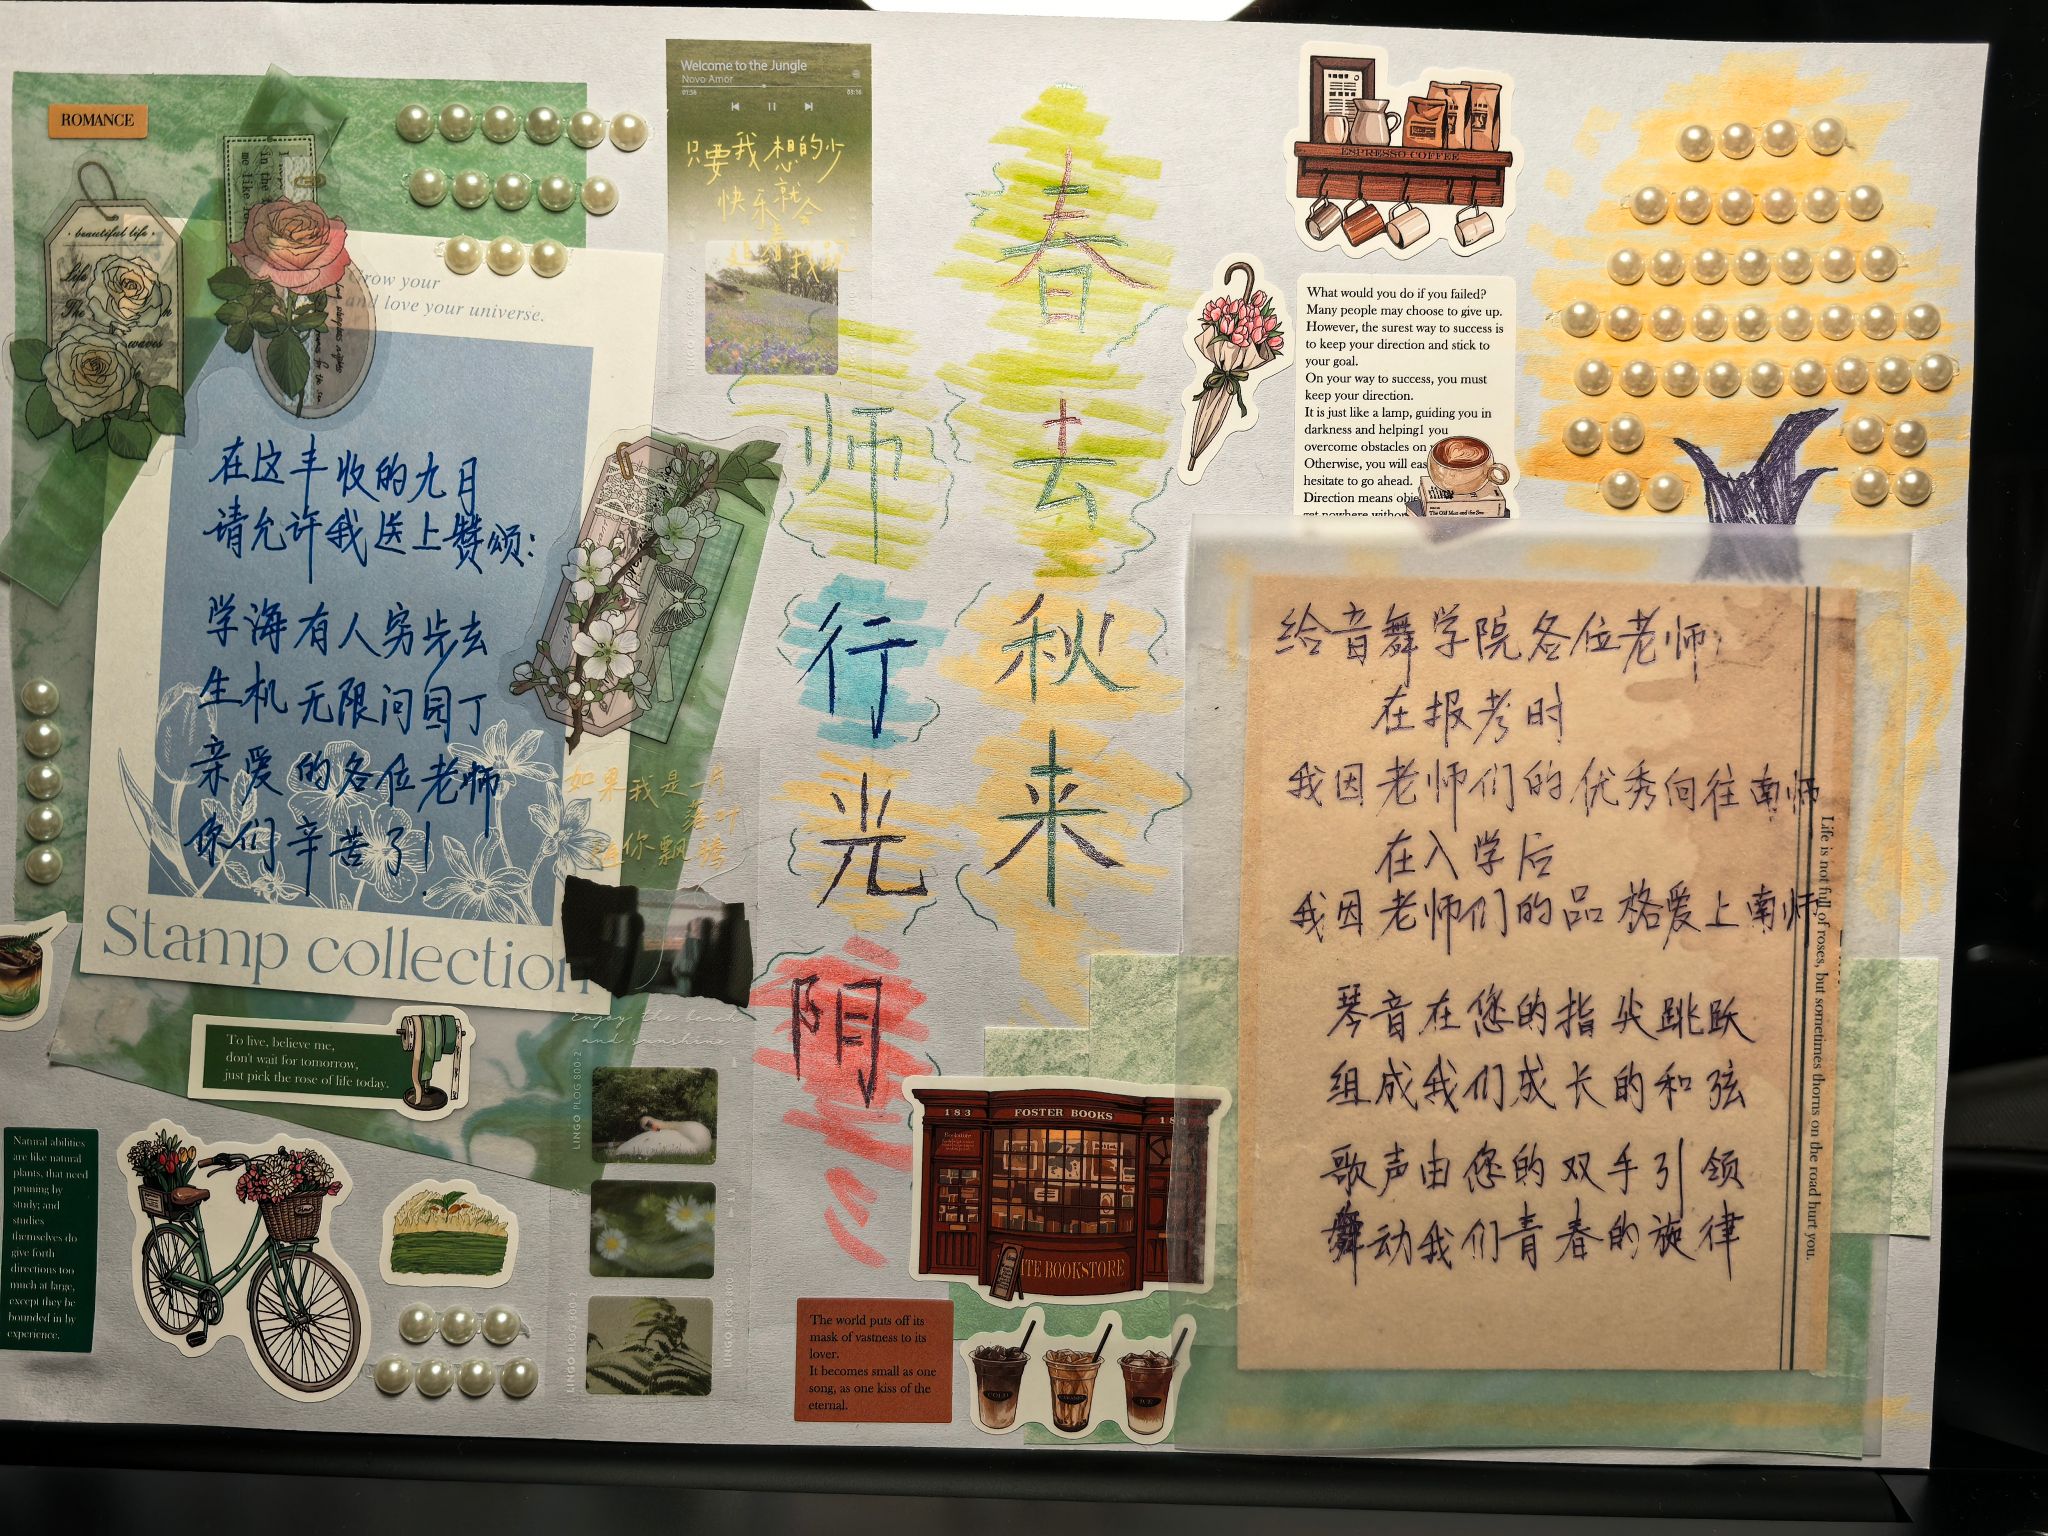 ROMANCE
beautiful life
Life
The
waves
Grow your
and love your universe.
在这丰收的九月
请允许我送上赞颂:
学海有人穷步去
生机无限问园丁
亲爱的各位老师
你们辛苦了!
Stamp collection
To live, believe me,
don't wait for tomorrow,
just pick the rose of life today.
Natural abilities
are like natural
plants, that need
pruning by
study; and
studies
themselves do
give forth
directions too
much at large,
except they be
bounded in by
experience.
Welcome to the Jungle
Novo Amor
只要我想的少
快乐就会
如果我是一片
落叶
你飘
Enjoy the
and sunshine
LINGO PLOG 800-2
春去秋来
师行光阴
ESPRESSO COFFEE
What would you do if you failed?
Many people may choose to give up.
However, the surest way to success is
to keep your direction and stick to
your goal.
On your way to success, you must
keep your direction.
It is just like a lamp, guiding you in
darkness and helping1 you
overcome obstacles on
Otherwise, you will eas
hesitate to go ahead.
Direction means obje
get nowhere withou
The Old Man and the Sea
给音舞学院各位老师:
在报考时
我因老师们的优秀向往南师
在入学后
我因老师们的品格爱上南师
琴音在您的指尖跳跃
组成我们成长的和弦
歌声由您的双手引领
舞动我们青春的旋律
Life is not full of roses, but sometimes thorns on the road hurt you.
183 FOSTER BOOKS 184
ITE BOOKSTORE
The world puts off its
mask of vastness to its
lover.
It becomes small as one
song, as one kiss of the
eternal.
COLD
ICE